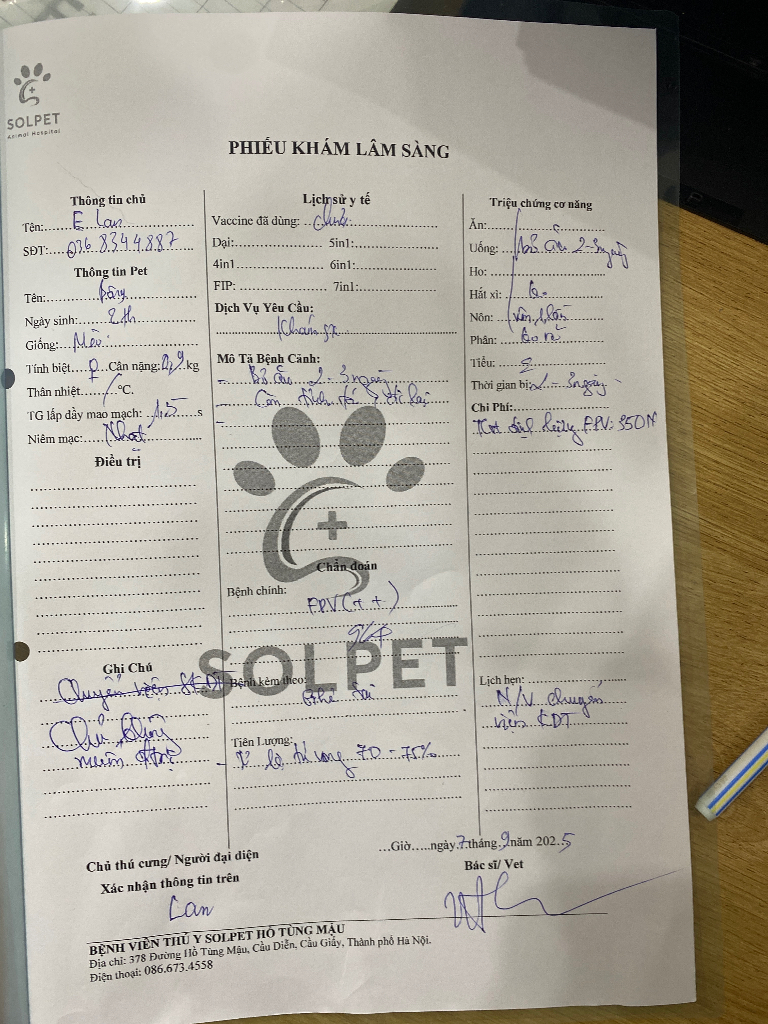 SOLPET
Animal Hospital
PHIẾU KHÁM LÂM SÀNG
Thông tin chủ
Tên: E Lan
SĐT: 036 8344 887
Thông tin Pet
Tên:
Ngày sinh: 2 th
Giống: Mèo
Tính biệt ♀ Cân nặng: 0,9 kg
Thân nhiệt / °C.
TG lấp đầy mao mạch: 1,5 s
Niêm mạc: Nhạt
Điều trị
Ghi Chú
Chuyển viện
Chủ không
muốn điều trị
Lịch sử y tế
Vaccine đã dùng: chưa
Dại: 5in1:
4in1 6in1:
FIP: 7in1:
Dịch Vụ Yêu Cầu:
Khám sk
Mô Tả Bệnh Cảnh:
- Bỏ ăn 2 - 3 ngày
-
-
SOLPET
Chẩn đoán
Bệnh chính:
FPV (+ +)
Bệnh kèm theo:
Tiên Lượng:
- Tỉ lệ tử vong 70 - 75%
Triệu chứng cơ năng
Ăn:
Uống: Bỏ ăn 2-3 ngày
Ho:
Hắt xì:
Nôn:
Phân:
Tiểu:
Thời gian bị: 2 - 3 ngày
Chi Phí:
FPV: 350K
Lịch hẹn:
N/V chuyển
viện
…Giờ…..ngày 7 tháng 9 năm 2025
Chủ thú cưng/ Người đại diện
Xác nhận thông tin trên
Lan
Bác sĩ/ Vet
BỆNH VIỆN THÚ Y SOLPET HỒ TÙNG MẬU
Địa chỉ: 378 Đường Hồ Tùng Mậu, Cầu Diễn, Cầu Giấy, Thành phố Hà Nội.
Điện thoại: 086.673.4558